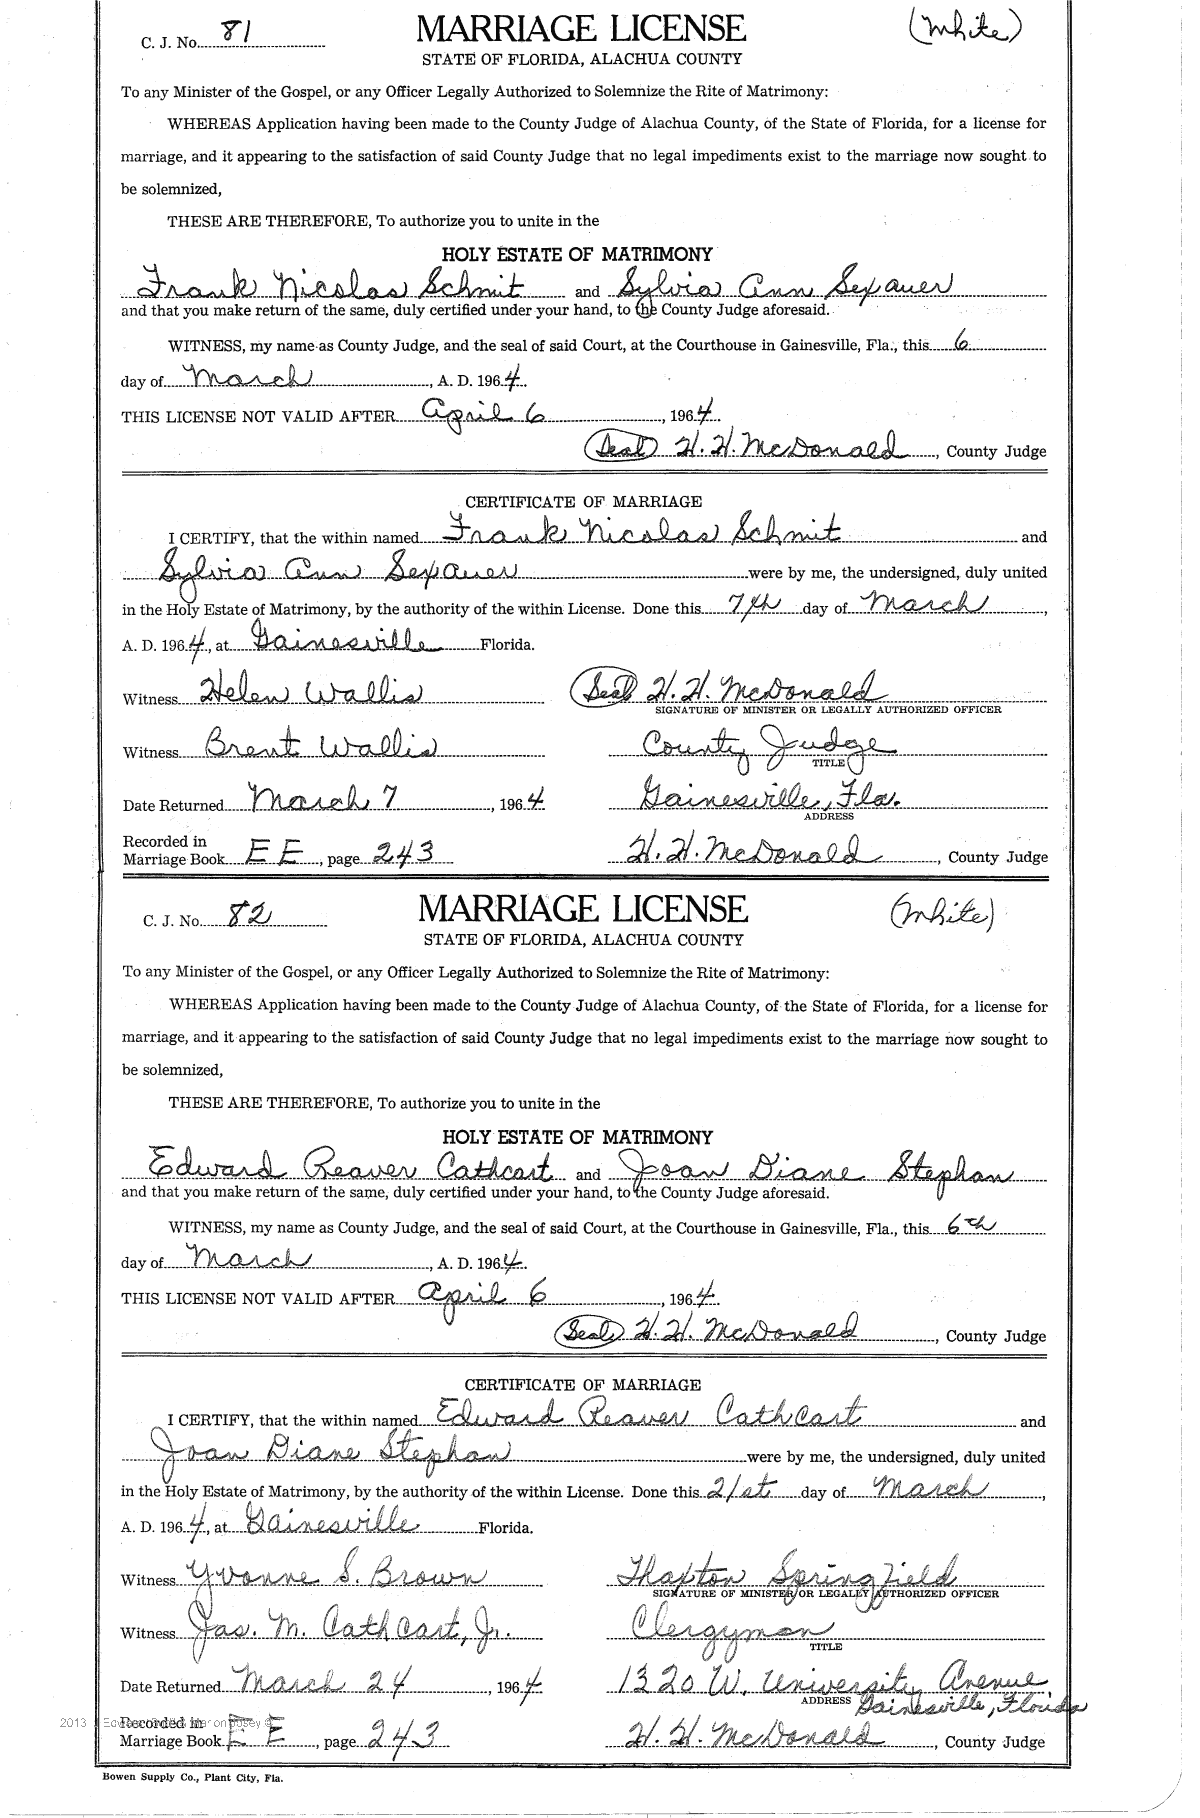 C. J. No. 81 MARRIAGE LICENSE (White)
STATE OF FLORIDA, ALACHUA COUNTY
To any Minister of the Gospel, or any Officer Legally Authorized to Solemnize the Rite of Matrimony:
WHEREAS Application having been made to the County Judge of Alachua County, of the State of Florida, for a license for
marriage, and it appearing to the satisfaction of said County Judge that no legal impediments exist to the marriage now sought to
be solemnized,
THESE ARE THEREFORE, To authorize you to unite in the
HOLY ESTATE OF MATRIMONY
Frank Nicolas Schmit and Sylvia Ann Sexauer
and that you make return of the same, duly certified under your hand, to the County Judge aforesaid.
WITNESS, my name as County Judge, and the seal of said Court, at the Courthouse in Gainesville, Fla., this 6
day of March, A. D. 1964.
THIS LICENSE NOT VALID AFTER April 6, 1964
(Seal) H. H. McDonald, County Judge
CERTIFICATE OF MARRIAGE
I CERTIFY, that the within named Frank Nicolas Schmit and
Sylvia Ann Sexauer were by me, the undersigned, duly united
in the Holy Estate of Matrimony, by the authority of the within License. Done this 7th day of March,
A. D. 1964, at Gainesville Florida.
Witness Helen Wallis (Seal) H. H. McDonald
SIGNATURE OF MINISTER OR LEGALLY AUTHORIZED OFFICER
Witness Brent Wallis County Judge
TITLE
Date Returned March 7, 1964 Gainesville, Fla.
ADDRESS
Recorded in
Marriage Book EE, page 243 H. H. McDonald, County Judge
C. J. No. 82 MARRIAGE LICENSE (White)
STATE OF FLORIDA, ALACHUA COUNTY
To any Minister of the Gospel, or any Officer Legally Authorized to Solemnize the Rite of Matrimony:
WHEREAS Application having been made to the County Judge of Alachua County, of the State of Florida, for a license for
marriage, and it appearing to the satisfaction of said County Judge that no legal impediments exist to the marriage now sought to
be solemnized,
THESE ARE THEREFORE, To authorize you to unite in the
HOLY ESTATE OF MATRIMONY
Edward Reaver Cathcart and Joan Diane Stephan
and that you make return of the same, duly certified under your hand, to the County Judge aforesaid.
WITNESS, my name as County Judge, and the seal of said Court, at the Courthouse in Gainesville, Fla., this 6th
day of March, A. D. 1964.
THIS LICENSE NOT VALID AFTER April 6, 1964
(Seal) H. H. McDonald, County Judge
CERTIFICATE OF MARRIAGE
I CERTIFY, that the within named Edward Reaver Cathcart and
Joan Diane Stephan were by me, the undersigned, duly united
in the Holy Estate of Matrimony, by the authority of the within License. Done this 21st day of March,
A. D. 1964, at Gainesville Florida.
Witness Yvonne S. Brown Thaxton Springfield
SIGNATURE OF MINISTER OR LEGALLY AUTHORIZED OFFICER
Witness Jas. M. Cathcart, Jr. Clergyman
TITLE
Date Returned March 24, 1964 1320 W. University Avenue
ADDRESS Gainesville, Florida
2013
Recorded in
Marriage Book EE, page 243 H. H. McDonald, County Judge
Bowen Supply Co., Plant City, Fla.